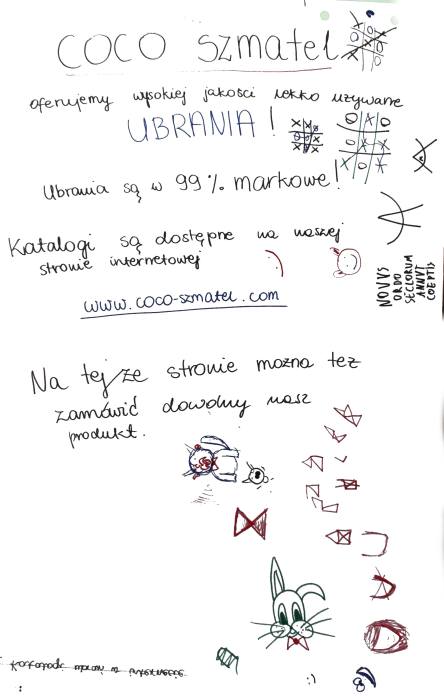 COCO Szmatel
oferujemy wysokiej jakości lekko używane
UBRANIA!
Ubrania są w 99% markowe!
Katalogi są dostępne na naszej
stronie internetowej
www.coco-szmatel.com
NOVVS
ORDO
SECLORUM
ANNVT
COEPTIS
Na tejze stronie mozna tez
zamówić dowolny nasz
produkt.
:)